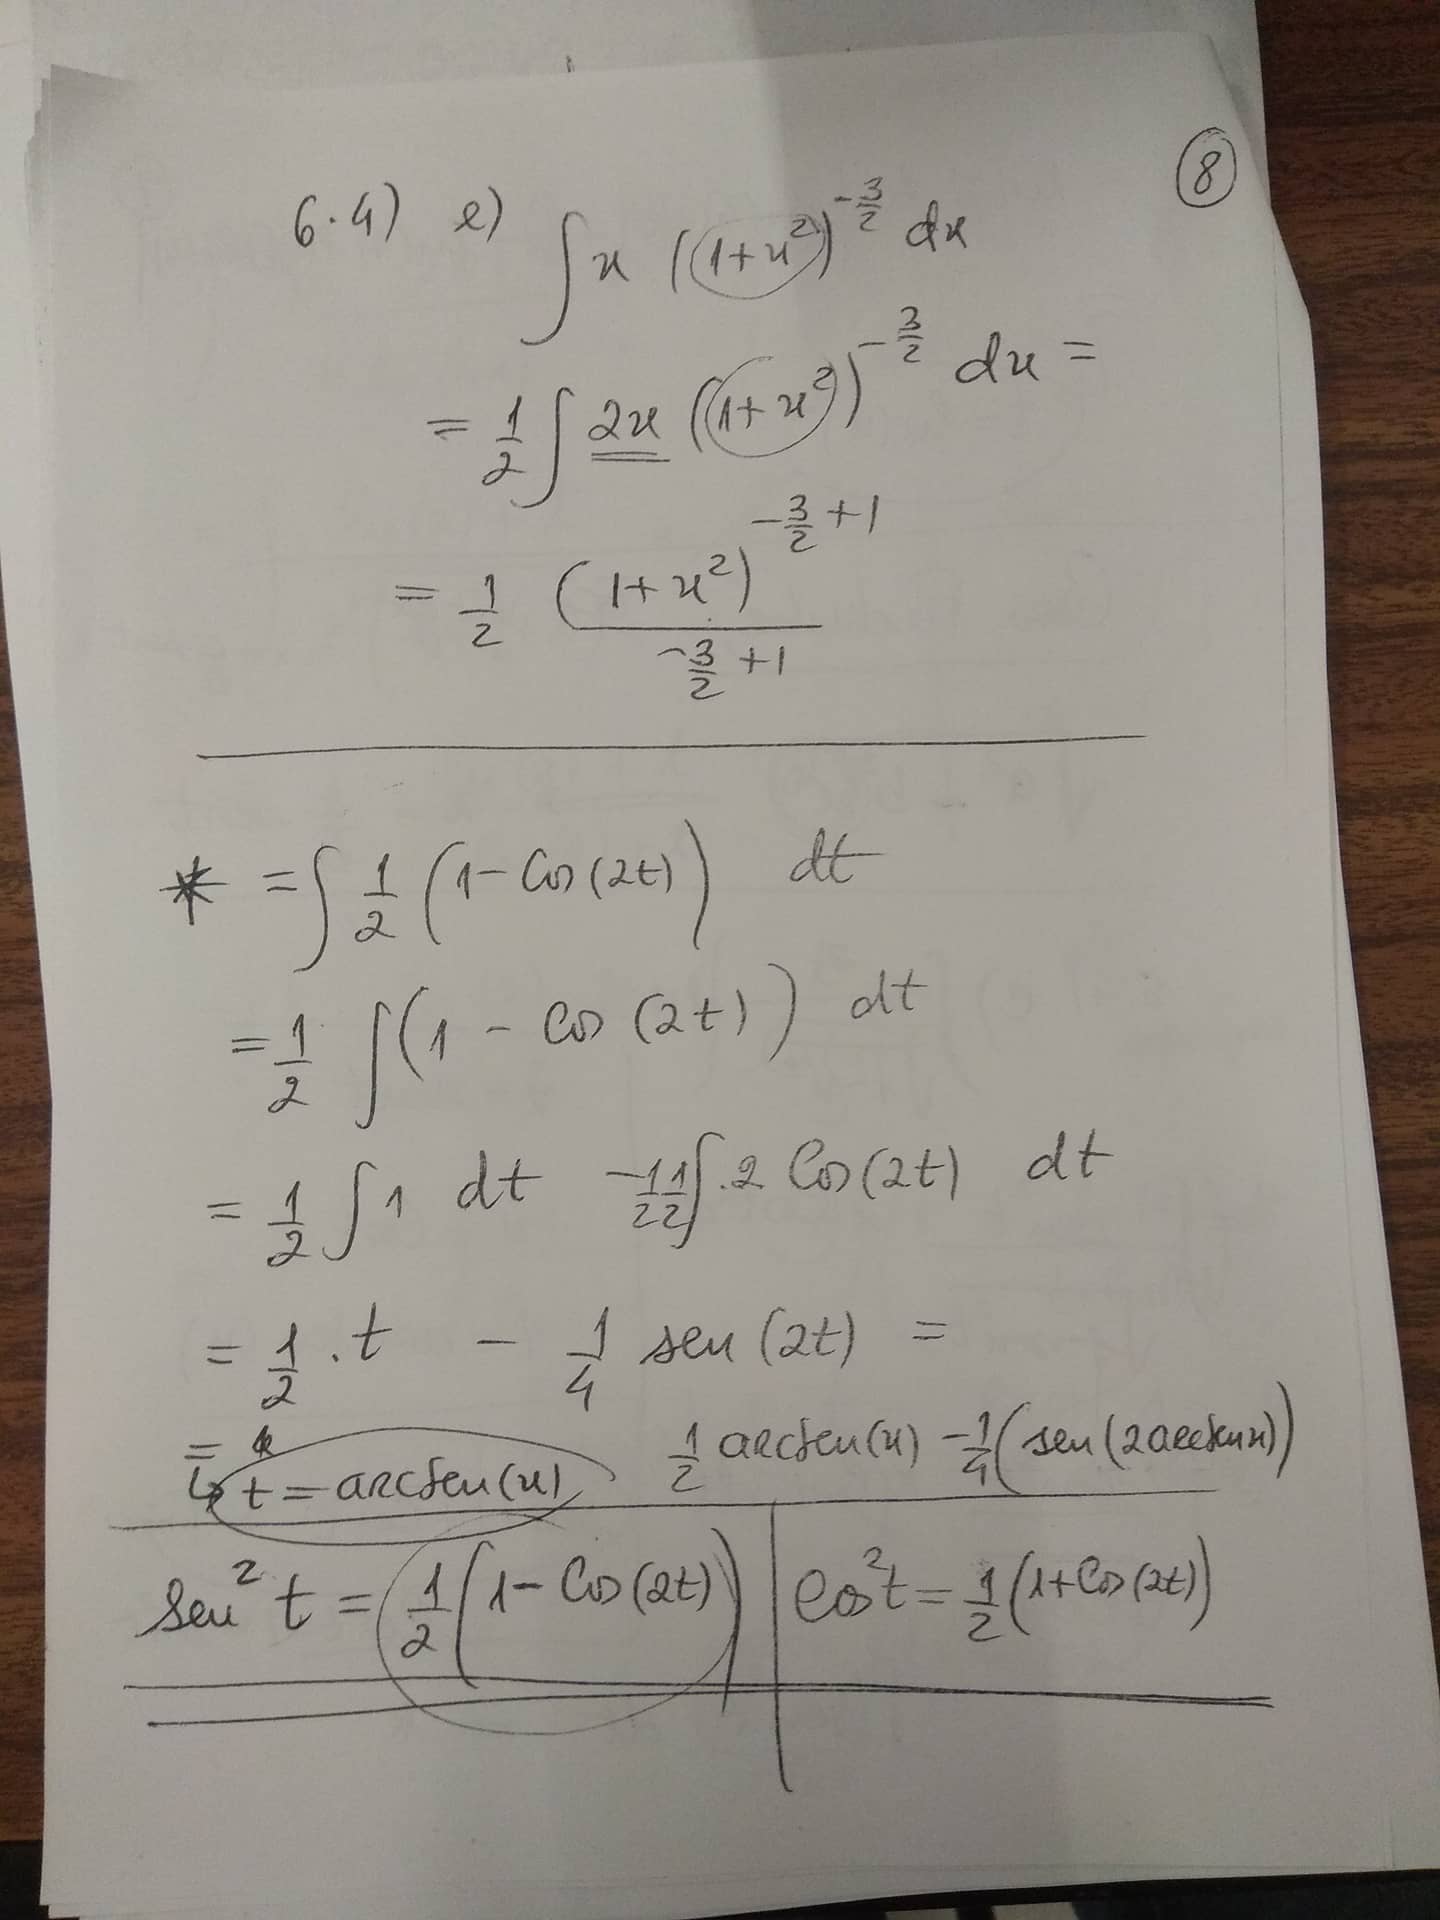 8
6.4) e) ∫ x (1+x²)^(-3/2) dx
= 1/2 ∫ 2x (1+x²)^(-3/2) dx =
= 1/2 (1+x²)^(-3/2 +1) / (-3/2 +1)
* = ∫ 1/2 (1 - Cos(2t)) dt
= 1/2 ∫ (1 - Cos(2t)) dt
= 1/2 ∫ 1 dt - 1/2 1/2 ∫ .2 Cos(2t) dt
= 1/2 . t - 1/4 sen(2t) =
= 1/2 arcsen(x) - 1/4 (sen(2arcsenx))
↳ t = arcsen(x)
sen² t = 1/2 (1 - Cos(2t)) | Cos² t = 1/2 (1+Cos(2t))